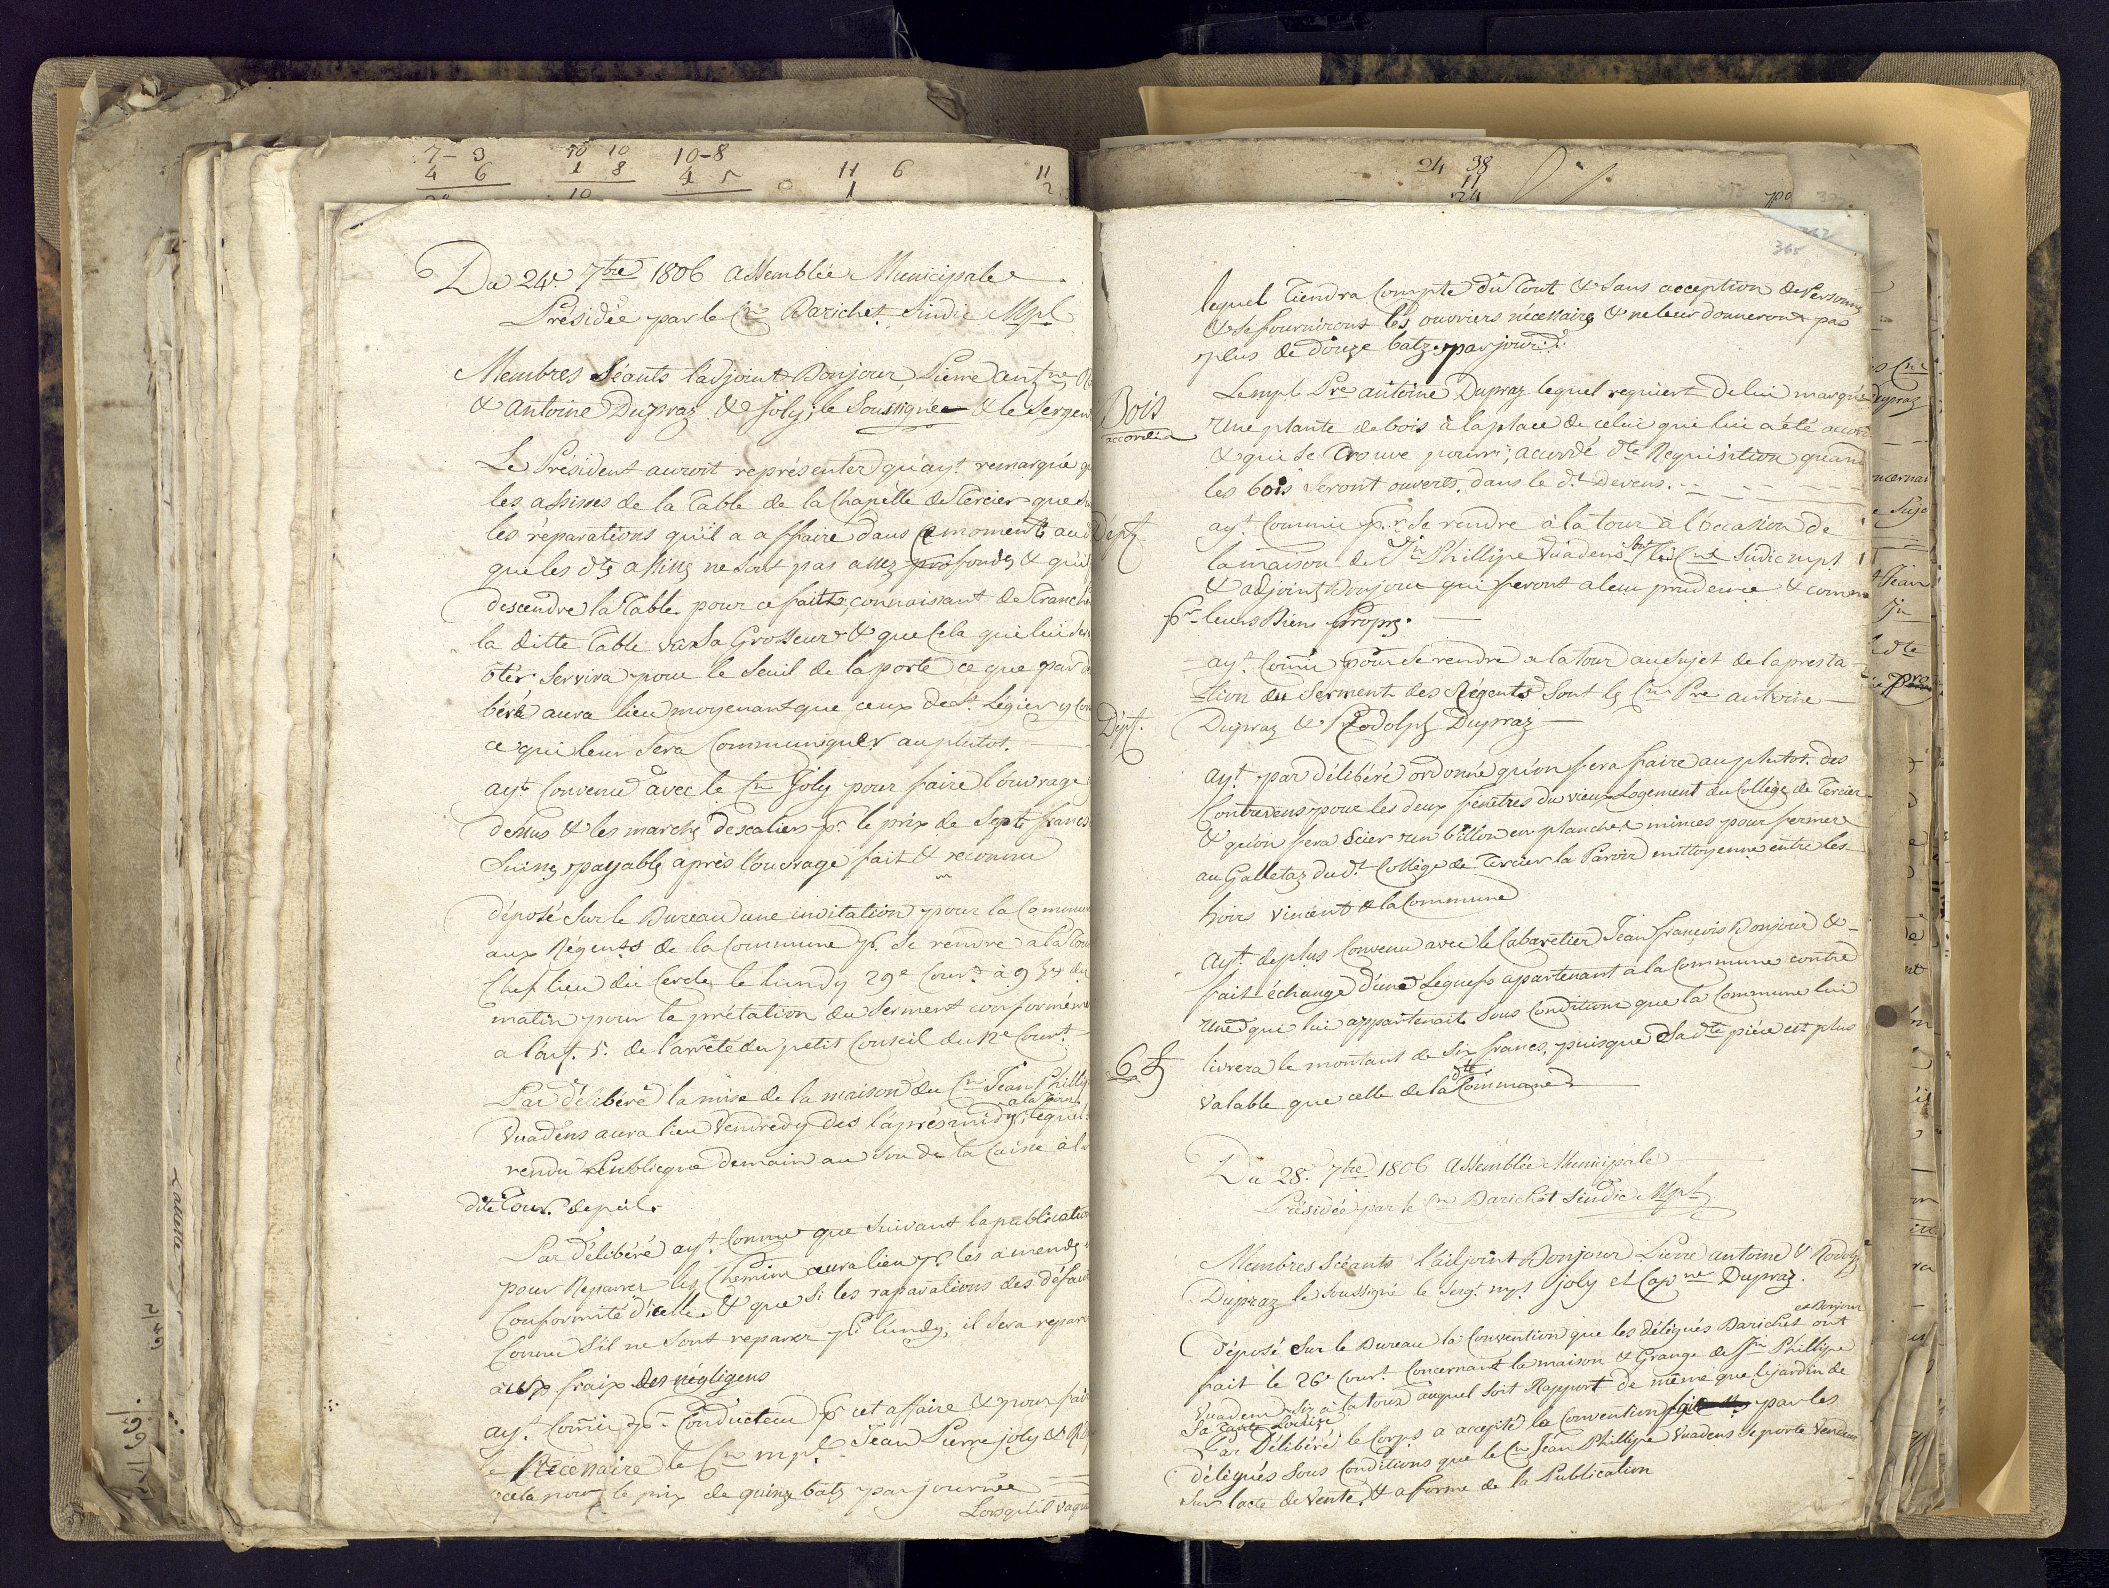 7-3 10 10 10-8 11 6 11
4 6 1 8 4 5 0 1 2
10
Du 24e. 7bre 1806 assemblée Municipale
Présidée par le Cn Barichet Sindic Mpl
Membres Séants l'adjoint Bonjour, Pierre antne
& Antoine Dupraz & Joly, le Soussignée & le Sergen
Le Président auroit représenter qu'ayt. remarqué q
les assises de la Table de la Chapelle de Tercier que
les réparations qu'il a affaire dans ce moment
que les dtes assises ne sont pas assez profondes & qu'il
descendre la Table pour ce faitte, connaissant de Tranche
la ditte Table vu sa Grosseur & que Cela qui lui sera
ôter Servira pour le Seuil de la porte ce que par dé
béré aura lieu moyenant que ceux de St. Légier y
ce qui leur Sera Communiquer au plutot.
ayt Convenu avec le Cn Joly pour faire l'ouvrage
dessus & les marches d'escaliers pr. le prix de Sept francs
Suises payables après l'ouvrage fait & reconnu
déposé Sur le Bureau une invitation pour la Commune
aux Régents de la Commune pr. Se rendre a la Tour
Chef lieu du Cercle le lundy 29e Court. à 9 h du
matin pour la prétation du Serment conforméme
a l'art. 5. de l'arrêté du petit Conseil du 12e Court.
Par délibéré la mise de la maison du Cn Jean Philli
a la Tour
Vuadens aura lieu Vendredy dès l'aprésmidy, lequel
rendu Publicque demain au son de la Caisse à la
dite Tour. de peil.
Par délibéré ayt. Connu que Suivant la publication
pour Reparrer les Chemins aura lieu pr. les amendes
Conformité d'icelle & que Si les raparations des défau
Connu S'il ne Sont reparer pr lundy, il Sera repare
aux fraix des négligens
ayt. Comis pr. Conducteur pr cet affaire & pour fai
le nécenaire le Cn mpl Jean Pierre joly &
cela pour le prix de quinze batz par journée
Lorsqu'il vaque
24 38
11
24
365
lequel Tiendra Compte du Tout & Sans acception de Personne
& Se fourniront les ouvriers nécessaires & ne leur donneront pas
plus de Douze batz par jour.
Bois
accordée
Le mpl Pre antoine Dupraz lequel requiert de lui marqué
une plante de bois à la place de celui qui lui a été accor
& qui Se Trouve pourri; accordé dte Requisition quand
les bois Seront ouverts. dans le dt. Devens.
Dépt.
ayt. Commis pr. Se rendre à la Tour à l'occasion de
la maison de Jn Phillipe Vuadens Sont les Cns Sindic mpl
& adjoint Bonjour qui feront a leur prudence & comme
pr leurs Biens Propres.
ayt. Comis pour Se rendre a la Tour au Sujet de la presta
-tion du Serment des Régents Sont les Cns Pre antoine
Dépt.
Dupraz & Rodolph Dupraz
ayt. par délibéré ordonné qu'on fera faire au plutot. des
Contrevens pour les deux fenêtres du vieux Logement du Collège de Tercier
& qu'on fera Scier un billon en planches minces pour fermer
au Galletaz du dt. Collège de Tercier la Paroir mittoyenne entre les
hoirs vincent & la Commune
Ayt. de plus Convenu avec le Cabaretier Jean françois Bonjour &
fait échange d'une Séguese appartenant à la Commune contre
une qui lui appartenait Sous Conditions que la Commune lui
6 f
livrera le montant de Six francs, puisque Sa dte pièce est plus
valable que celle de la dte Commune
Du 28. 7bre 1806 assemblée Municipale
Présidée par le Cn Barichet Sindic Mpl
Membres Séeants l'adjoint Bonjour Pierre antoine & Rodolp
Dupraz le Soussigné le Sergt. mpl. joly et Capne Dupraz.
et Bonjour
déposé Sur le Bureau la Convention que les délégués Barichet ont
fait le 26e Court. Concernant la maison & Grange de Jn Phillipe
Vuadens Sis à la Tour auquel Soit Rapport de même que le jardin de
Sa Tante Louise
Par Délibéré le Corps a accepté la Convention par les
délégués Sous Conditions que le Cn Jean Phillipe Vuadens Se porte Vendeur
Sur l'acte de Vente, & a forme de la Publication